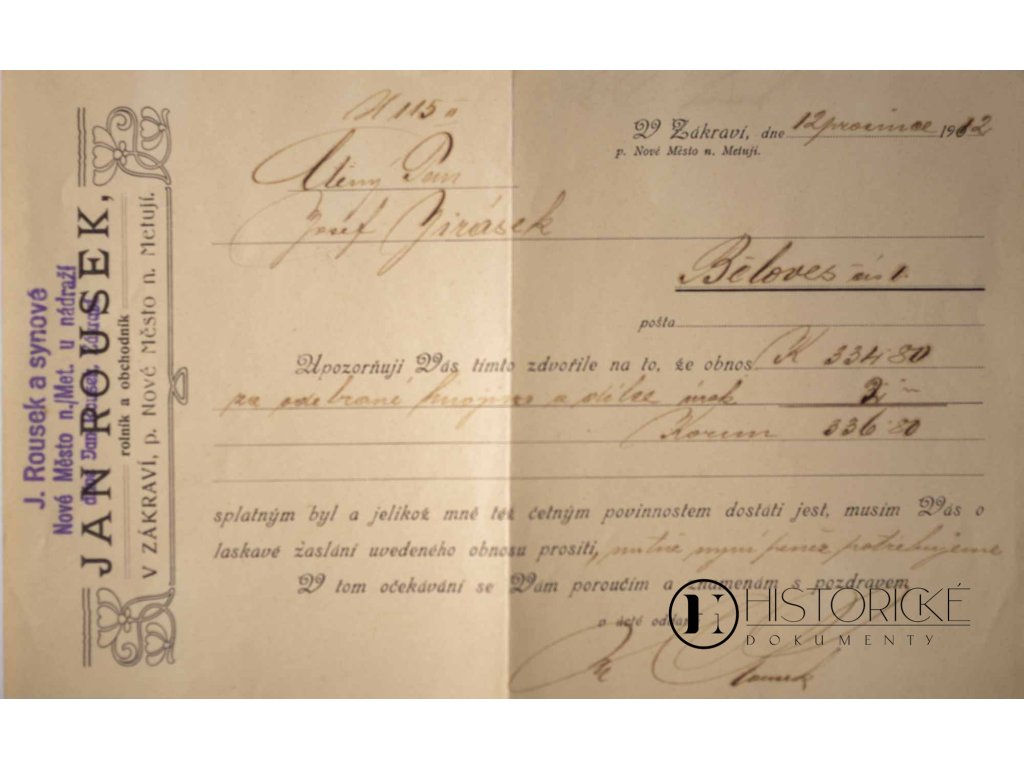 J. Rousek a synové
Nové Město n./Met. u nádraží
JAN ROUSEK,
rolník a obchodník
V ZÁKRAVÍ, p. Nové Město n. Metují.
V Zákraví, dne 12 prosince 1912
p. Nové Město n. Metují.
Ctěný Pan
Josef Jirásek
Běloves čís 1.
pošta
Upozorňuji Vás tímto zdvořile na to, že obnos K 334·80
za odebrané a úrok 2 —
Korun 336·80
splatným byl a jelikož mně též četným povinnostem dostáti jest, musím Vás o
laskavé zaslání uvedeného obnosu prositi, nutně nyní peněz potřebujeme
V tom očekávání se Vám poroučím a znamenám s pozdravem
v úctě oddaný
Rousek
HISTORICKÉ
DOKUMENTY